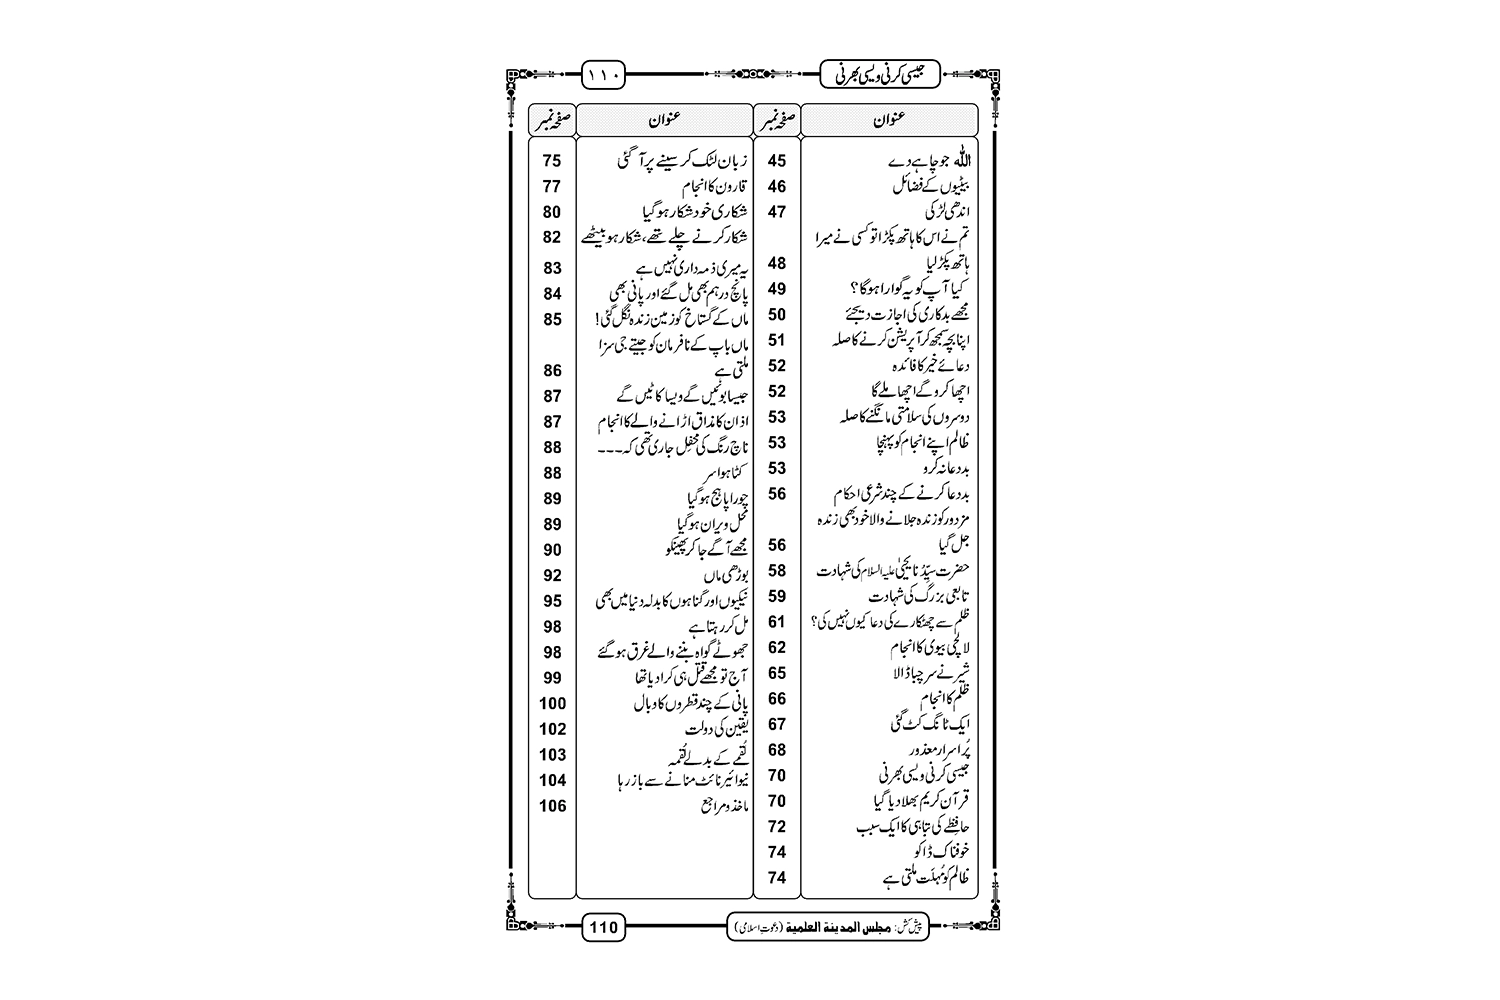 جیسی کرنی ویسی بھرنی
١١٠
عنوان صفحہ نمبر
اللہ جو چاہے دے 45
بیٹیوں کے فضائل 46
اندھی لڑکی 47
تم نے اس کا ہاتھ پکڑا تو کسی نے میرا
ہاتھ پکڑ لیا 48
کیا آپ کو یہ گوارا ہوگا؟ 49
مجھے بدکاری کی اجازت دیجئے 50
اپنا بچہ سمجھ کر آپریشن کرنے کا صلہ 51
دعائے خیر کا فائدہ 52
اچھا کروگے اچھا ملے گا 52
دوسروں کی سلامتی مانگنے کا صلہ 53
ظالم اپنے انجام کو پہنچا 53
بددعا نہ کرو 53
بددعا کرنے کے چند شرعی احکام 56
مزدور کو زندہ جلانے والا خود بھی زندہ
جل گیا 56
حضرت سیِّدُنا یحییٰ علیہ السلام کی شہادت 58
تابعی بزرگ کی شہادت 59
ظلم سے چھٹکارے کی دعا کیوں نہیں کی؟ 61
لالچی بیوی کا انجام 62
شیر نے سر چبا ڈالا 65
ظلم کا انجام 66
ایک ٹانگ کٹ گئی 67
پُراسرار معذور 68
جیسی کرنی ویسی بھرنی 70
قرآن کریم بھلا دیا گیا 70
حافظے کی تباہی کا ایک سبب 72
خوفناک ڈاکو 74
ظالم کو مُہلَت ملتی ہے 74
عنوان صفحہ نمبر
زبان لٹک کر سینے پر آ گئی 75
قارون کا انجام 77
شکاری خود شکار ہوگیا 80
شکار کرنے چلے تھے، شکار ہو بیٹھے 82
یہ میری ذمہ داری نہیں ہے 83
پانچ درہم بھی مل گئے اور پانی بھی 84
ماں کے گستاخ کو زمین زندہ نگل گئی! 85
ماں باپ کے نافرمان کو جیتے جی سزا
ملتی ہے 86
جیسا بوئیں گے ویسا کاٹیں گے 87
اذان کا مذاق اڑانے والے کا انجام 87
ناچ رنگ کی محفل جاری تھی کہ۔۔۔ 88
کٹا ہوا سر 88
چور اپاہج ہوگیا 89
محل ویران ہوگیا 89
مجھے آگے جا کر پھینکو 90
بوڑھی ماں 92
نیکیوں اور گناہوں کا بدلہ دنیا میں بھی 95
مل کر رہتا ہے 98
جھوٹے گواہ بننے والے غرق ہوگئے 98
آج تو مجھے قتل ہی کرا دیا تھا 99
پانی کے چند قطروں کا وبال 100
یقین کی دولت 102
لُقمے کے بدلے لُقمہ 103
نیوائیر نائٹ منانے سے باز رہا 104
ماخذ و مراجع 106
پیش کش: مجلس المدینۃ العلمیۃ (دعوتِ اسلامی)
110